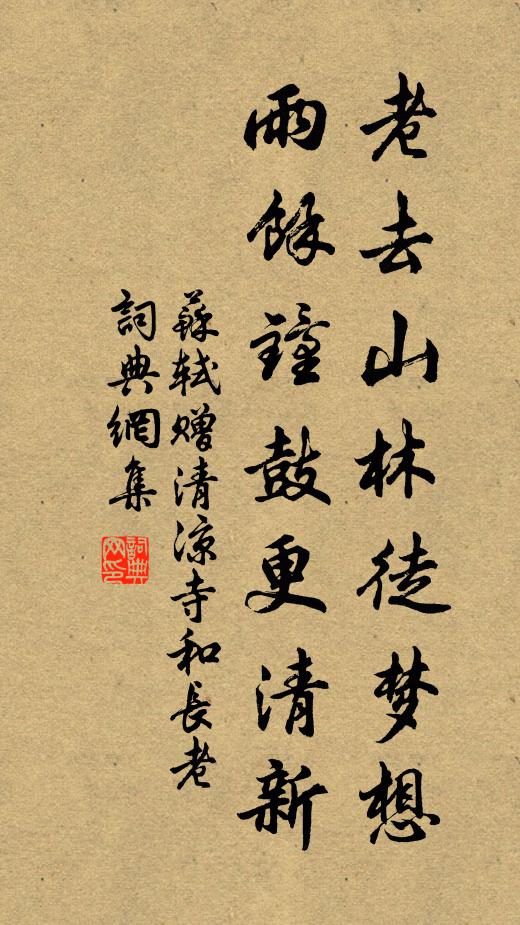 老去山林徒梦想
雨餘鐘鼓更清新
蘇軾贈清涼寺和長老
詞典網集
詞典网印